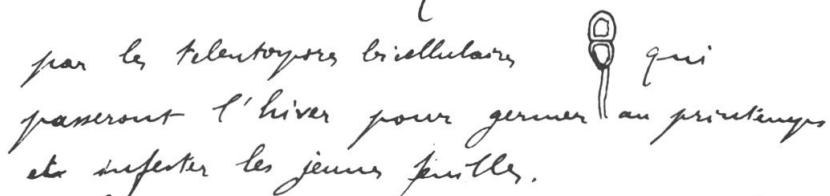 par les teleutospores bicellulaires qui
passeront l'hiver pour germer au printemps
et infester les jeunes feuilles.